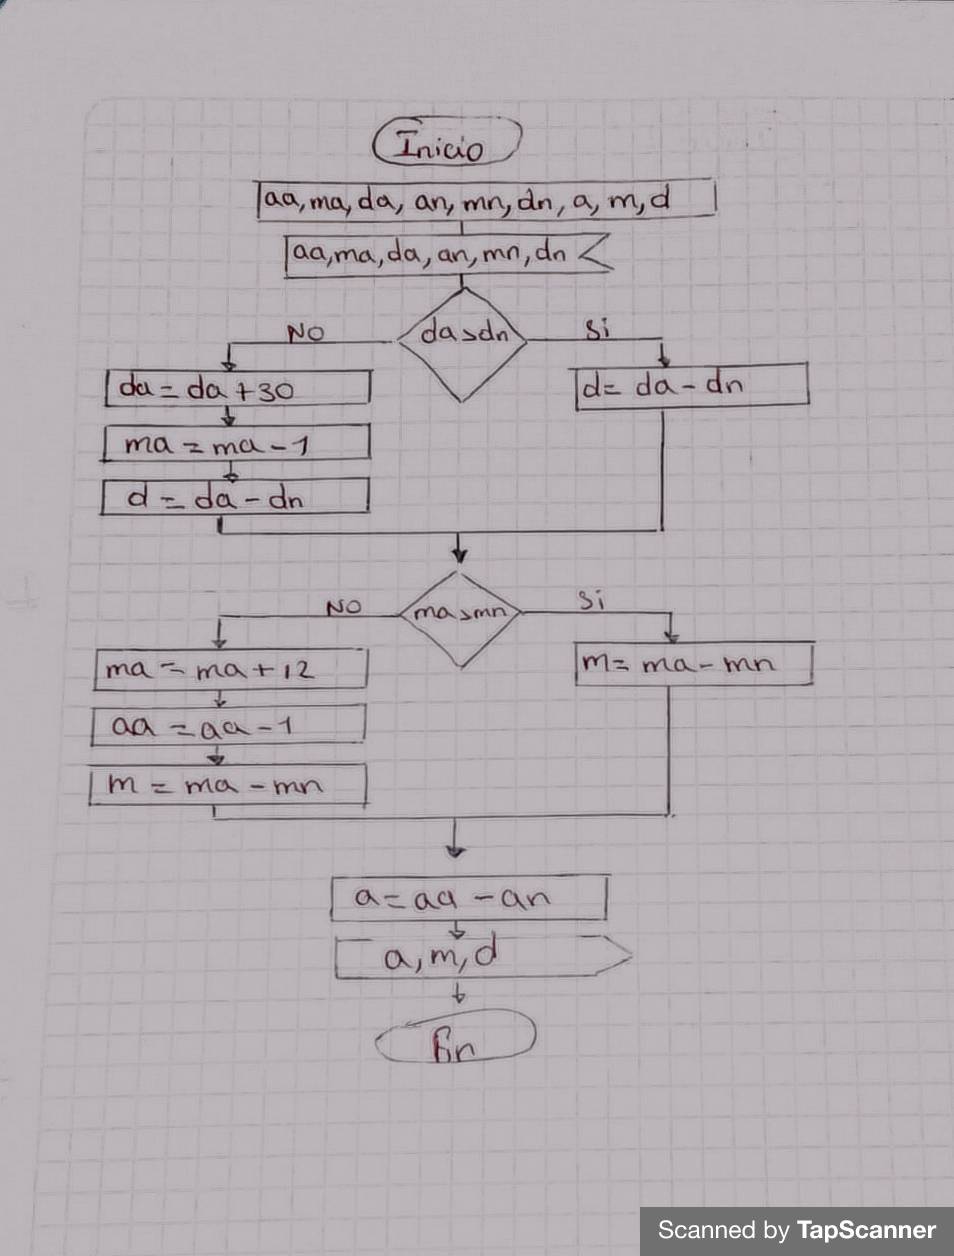 Inicio
aa, ma, da, an, mn, dn, a, m, d
aa, ma, da, an, mn, dn
da>dn
NO
Si
da = da + 30
d = da - dn
ma = ma - 1
d = da - dn
ma>mn
NO
Si
ma = ma + 12
m = ma - mn
aa = aa - 1
m = ma - mn
a = aa - an
a, m, d
Fin
Scanned by TapScanner